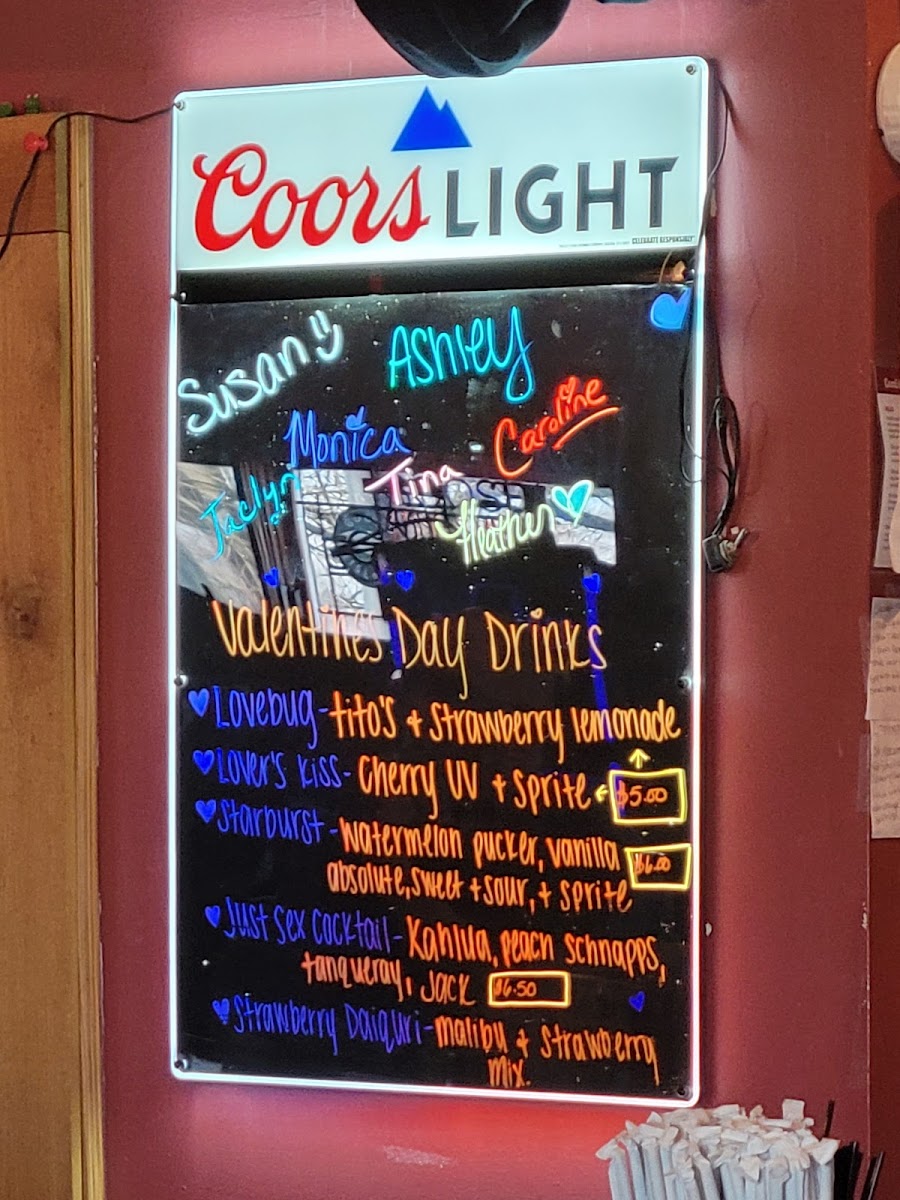 Coors LIGHT
CELEBRATE RESPONSIBLY
Susan Ashley
Monica Caroline
Jaclyn Tina
Heather
Valentine's Day Drinks
Lovebug - tito's + Strawberry lemonade
Lover's kiss - Cherry UV + Sprite $5.00
Starburst - watermelon pucker, vanilla $6.00
absolute, sweet + sour, + sprite
Just sex cocktail - Kahlua, peach schnapps,
tanqueray, Jack $6.50
Strawberry Daiquri - malibu + Strawberry
mix.